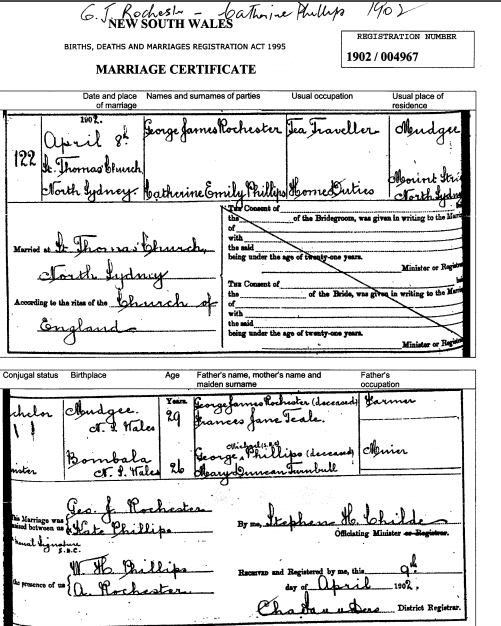 G. J. Rochester - Catherine Phillips 1902
NEW SOUTH WALES
BIRTHS, DEATHS AND MARRIAGES REGISTRATION ACT 1995
REGISTRATION NUMBER
1902 / 004967
MARRIAGE CERTIFICATE
Date and place of marriage Names and surnames of parties Usual occupation Usual place of residence
122
1902.
April 8th
St. Thomas Church,
North Sydney.
George James Rochester Tea Traveller Mudgee
Catherine Emily Phillips Home Duties Mount Stre
North Sydney
Married at St Thomas' Church,
North Sydney
According to the rites of the Church of
England
The Consent of
the of the Bridegroom, was given in writing to the Marri
of
with
the said
being under the age of twenty-one years.
Minister or Registra
The Consent of
the of the Bride, was given in writing to the Marri
of
with
the said
being under the age of twenty-one years.
Minister or Registra
Conjugal status Birthplace Age Father's name, mother's name and maiden surname Father's occupation
chelor Mudgee. Years. George James Rochester (deceased) Farmer
N. S. Wales 29 Frances Jane Teale.
Bombala George Phillips (deceased) Miner
inster N. S. Wales 26 Mary Duncan Turnbull
This Marriage was
mised between us
Geo. J. Rochester
Kate Phillips
usual Signature
S.B.C.
the presence of us
W. H. Phillips
A. Rochester
By me, Stephen H. Childe
Officiating Minister or Registrar.
Received and Registered by me, this 9th
day of April 1902.
District Registrar.